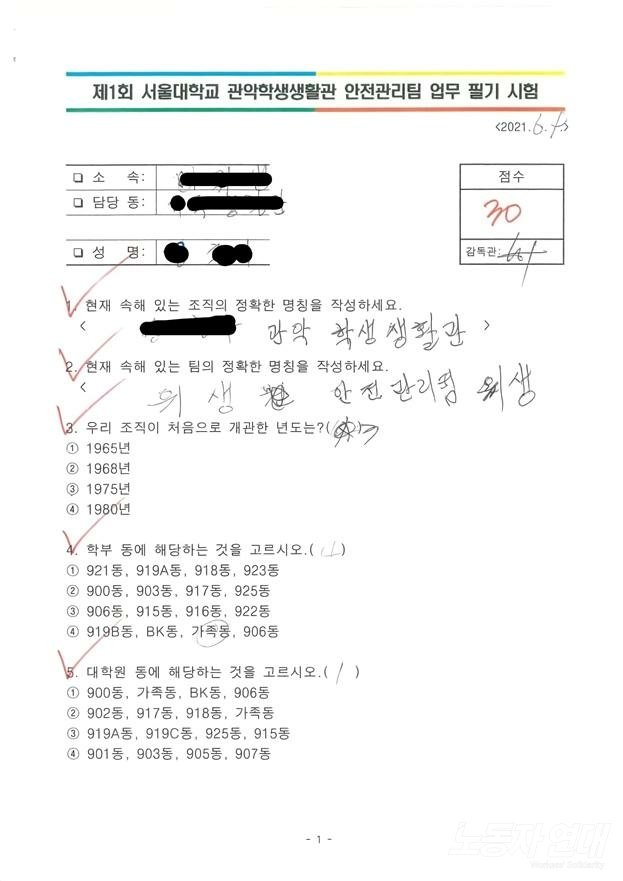 제1회 서울대학교 관악학생생활관 안전관리팀 업무 필기 시험
<2021.6.9.>
❏ 소 속:
❏ 담당 동:
❏ 성 명:
점수
30
감독관:
1. 현재 속해 있는 조직의 정확한 명칭을 작성하세요.
< 관악 학생생활관 >
2. 현재 속해 있는 팀의 정확한 명칭을 작성하세요.
< 위생 안전관리팀 위생
3. 우리 조직이 처음으로 개관한 년도는?( )
① 1965년
② 1968년
③ 1975년
④ 1980년
4. 학부 동에 해당하는 것을 고르시오.( )
① 921동, 919A동, 918동, 923동
② 900동, 903동, 917동, 925동
③ 906동, 915동, 916동, 922동
④ 919B동, BK동, 가족동, 906동
5. 대학원 동에 해당하는 것을 고르시오.( 1 )
① 900동, 가족동, BK동, 906동
② 902동, 917동, 918동, 가족동
③ 919A동, 919C동, 925동, 915동
④ 901동, 903동, 905동, 907동
- 1 -
노동자 연대
Workers' Solidarity